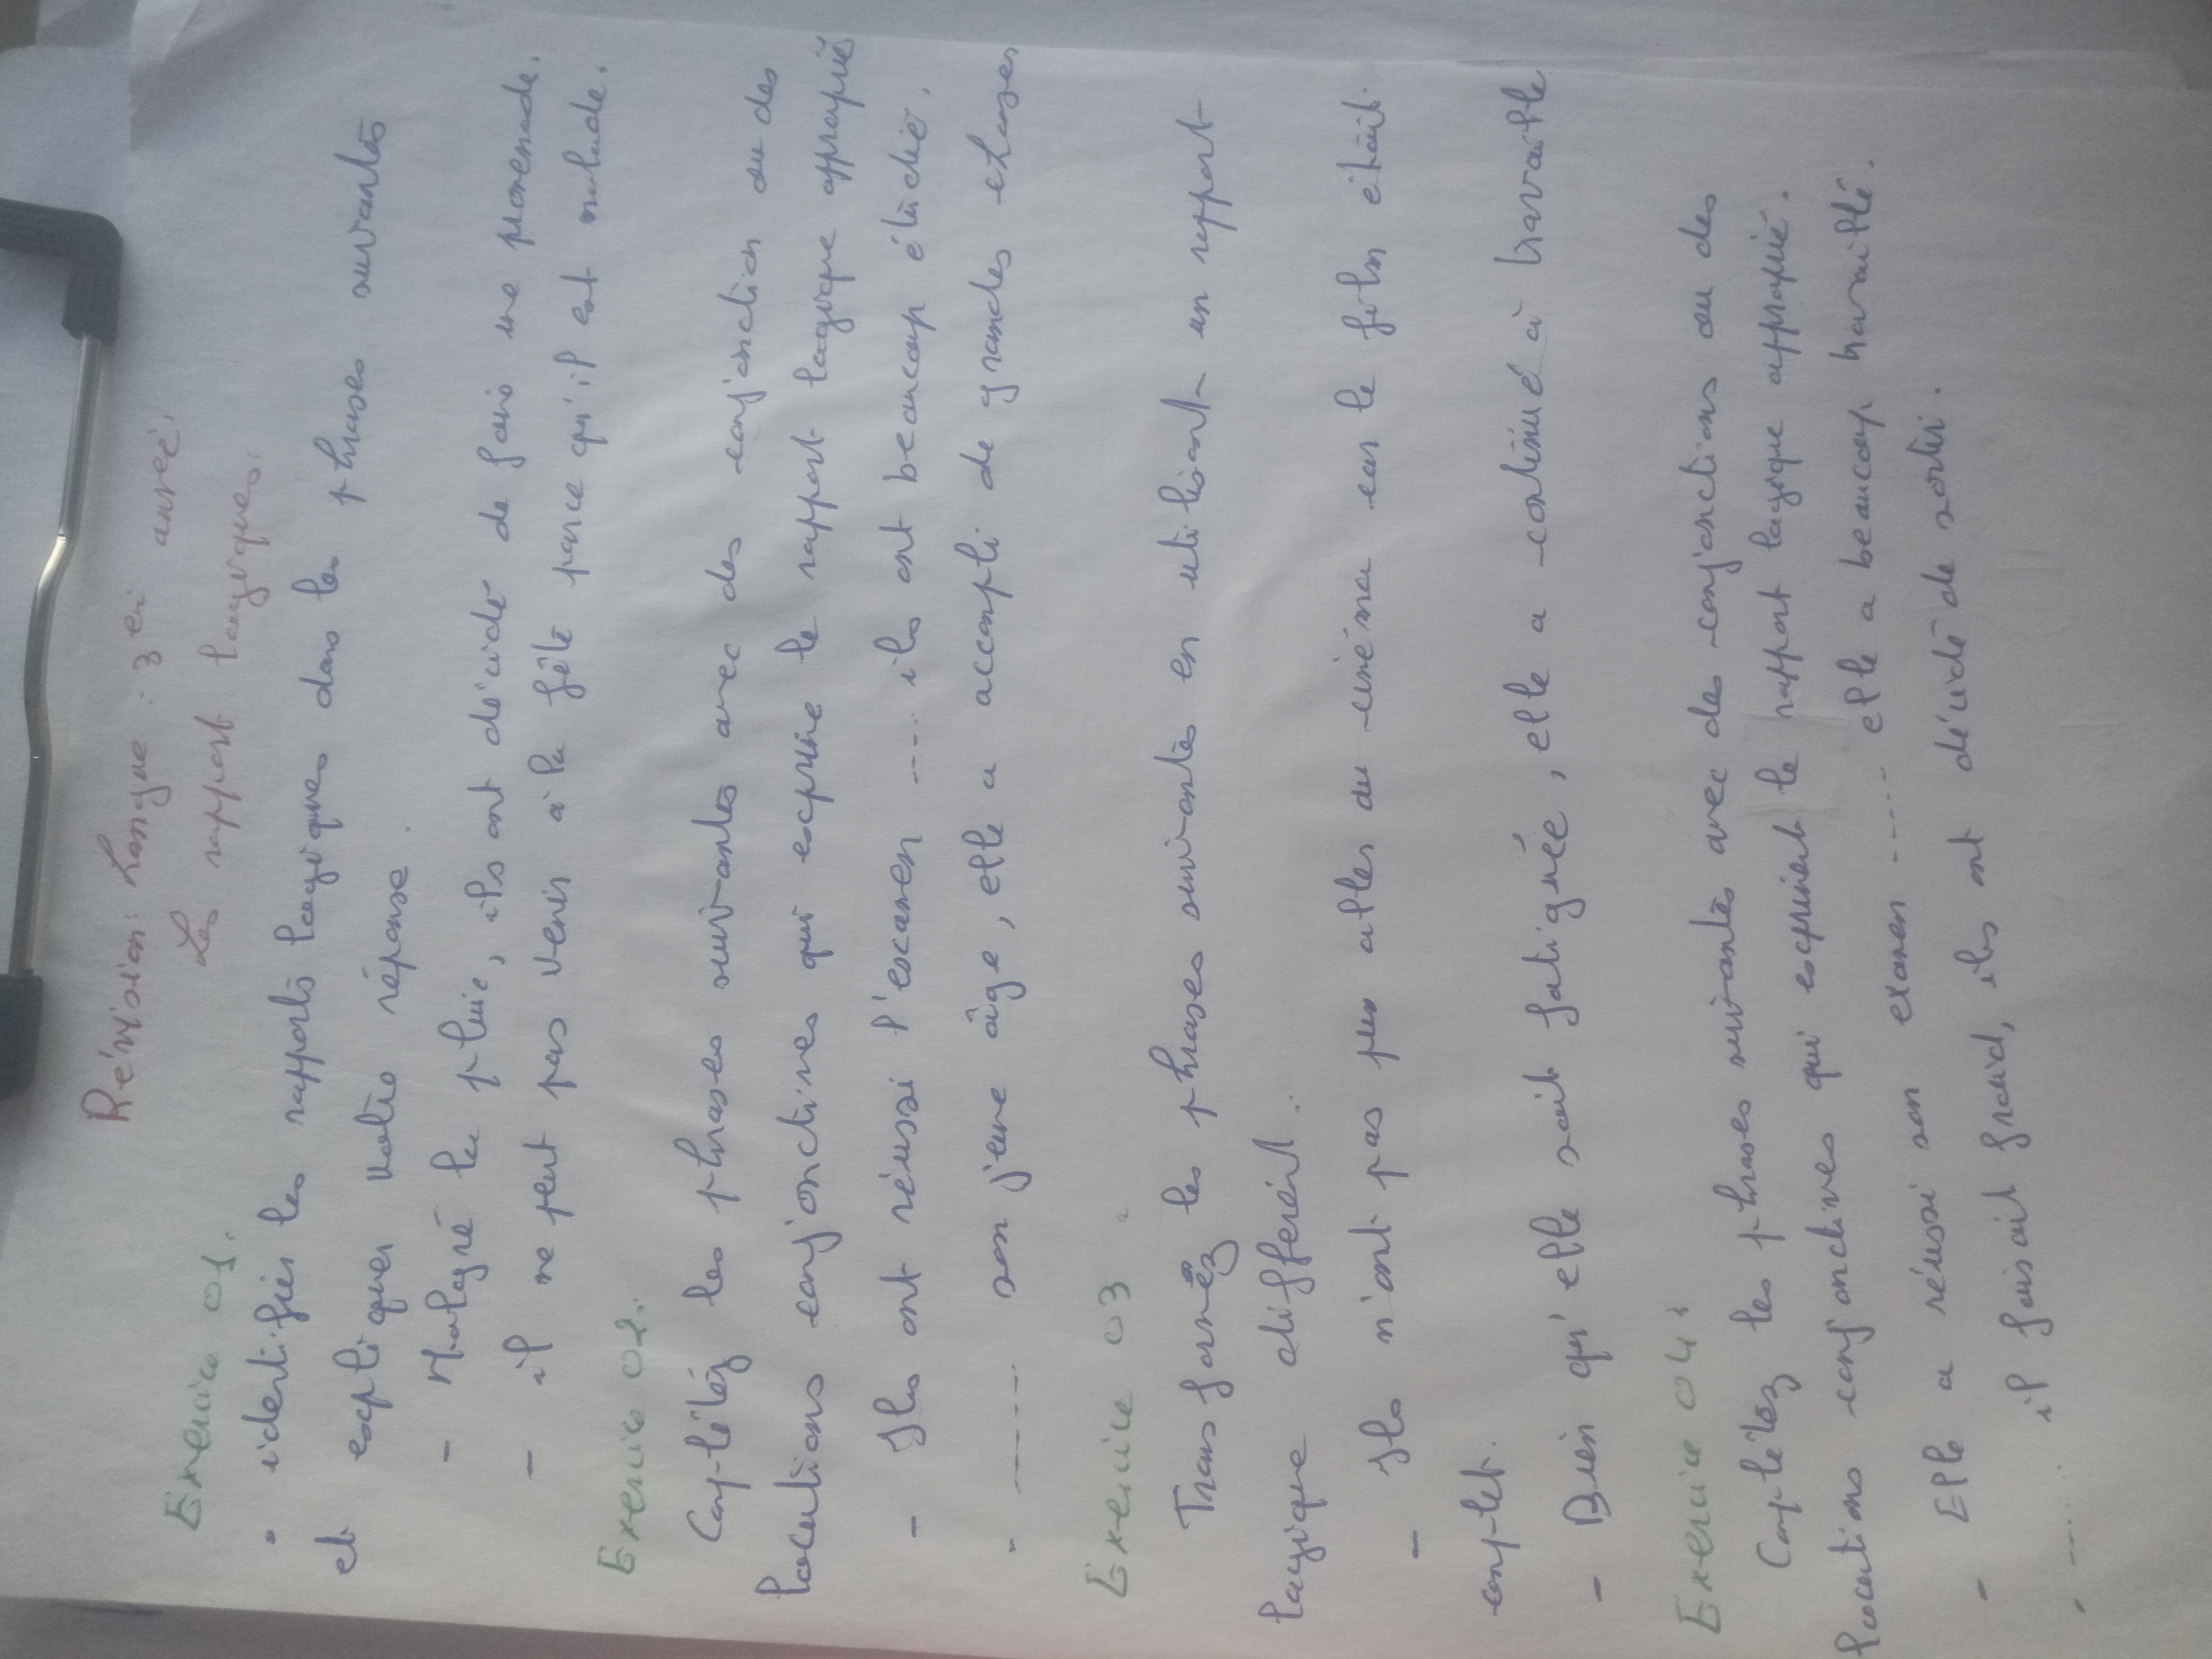 Révision: Langue : 3 ei année
Les rapport logiques:
Exercice 01:
- identifier les rapports logiques dans les phrases suivantes
et expliquer votre réponse.
- Malgré la pluie, ils ont décidé de faire une promenade.
- il ne peut pas venir à la fête parce qu'il est malade.
Exercice 02:
Complétéz les phrases suivantes avec des conjonction ou des
locutions conjonctives qui exprime le rapport logique approprié
- Ils ont réussi l'examen ---- ils ont beaucoup étudié.
- ------ son jeune âge, elle a accompli de grandes choses
Exercice 03
Transformez les phrases suivantes en utilisant un rapport
logique différent.
- Ils n'ont pas pu aller au cinéma car le film était
complet.
- Bien qu'elle soit fatiguée, elle a continué à travaille
Exercice 04:
Complétéz les phrases suivantes avec des conjonctions ou des
locutions conjonctives qui expriment le rapport logique approprié.
- Elle a réussi son examen ----- elle a beaucoup travaillé.
- ----- il faisait froid, ils ont décidé de sortir.